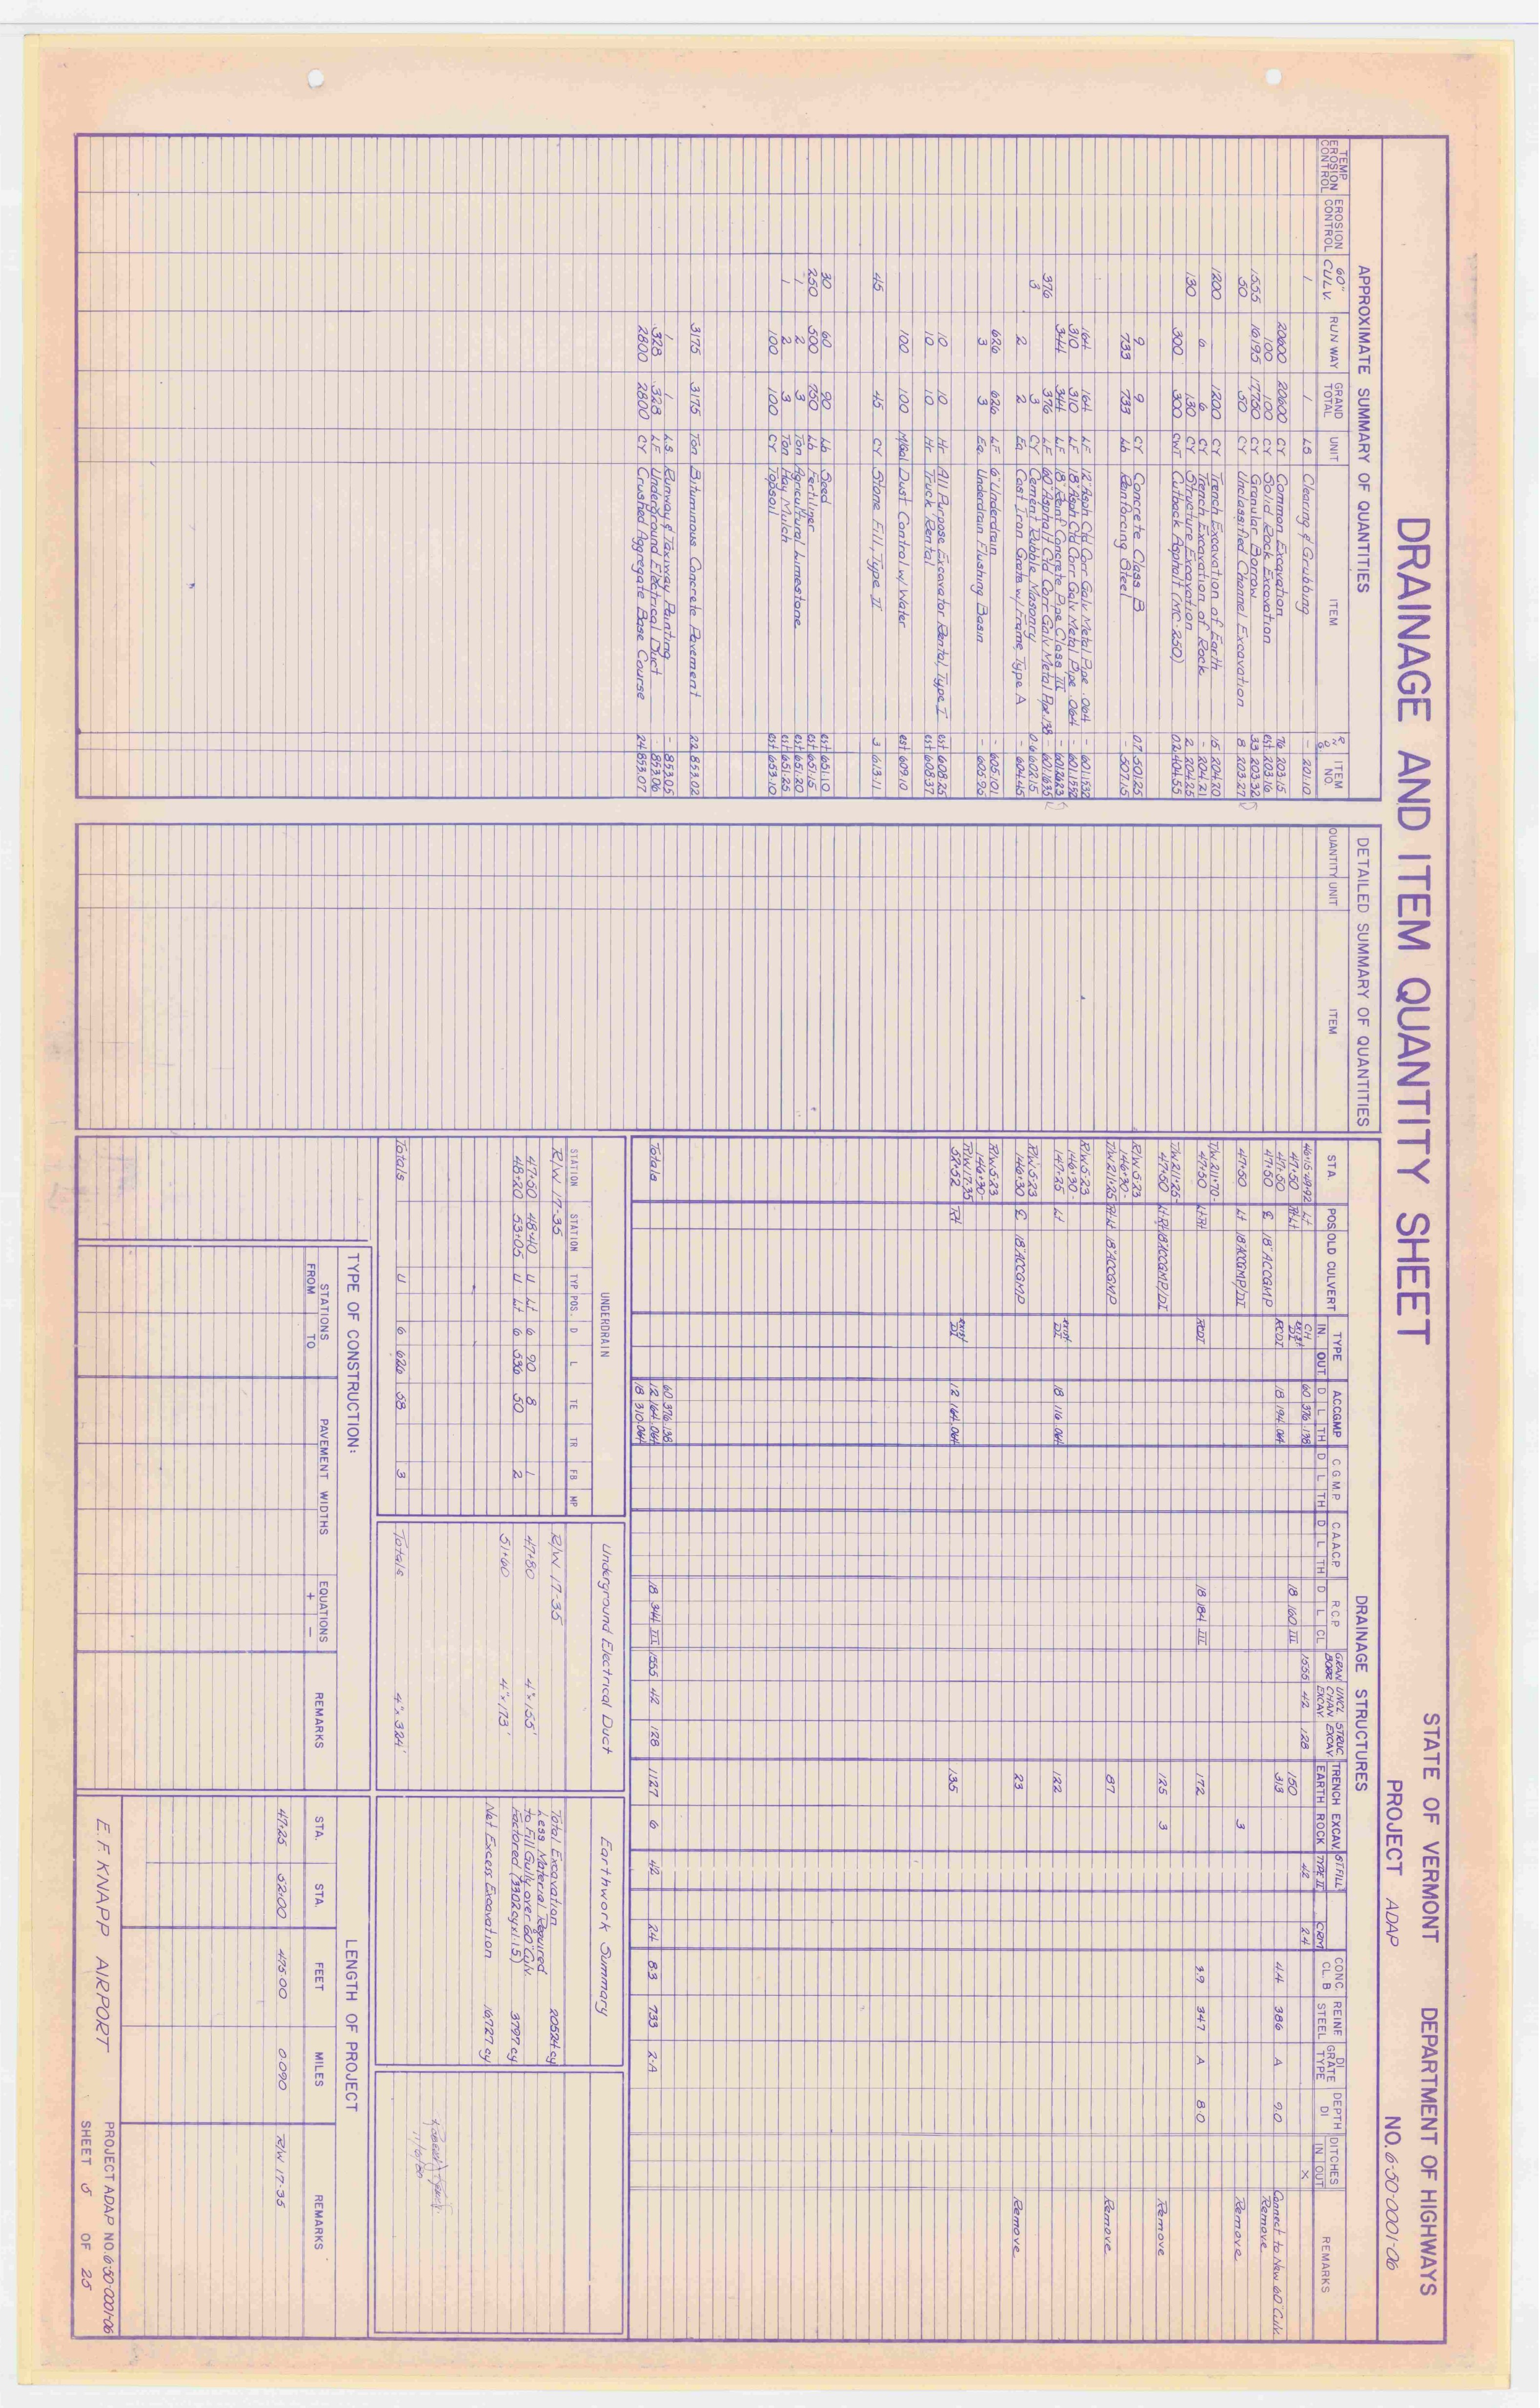 DRAINAGE AND ITEM QUANTITY SHEET
STATE OF VERMONT DEPARTMENT OF HIGHWAYS
PROJECT ADAP NO. 6-50-0001-06
APPROXIMATE SUMMARY OF QUANTITIES
TEMP EROSION CONTROL EROSION CONTROL 60" CULV. RUN WAY GRAND TOTAL UNIT ITEM ITEM NO.
1 1 LS Clearing & Grubbing - 201.10
20600 20600 CY Common Excavation 76 203.15
100 100 CY Solid Rock Excavation est. 203.16
1555 16195 17750 CY Granular Borrow 33 203.32
50 50 CY Unclassified Channel Excavation 8 203.27
1200 1200 CY Trench Excavation of Earth 15 204.20
6 6 CY Trench Excavation of Rock - 204.21
130 130 CY Structure Excavation 2 204.25
300 300 CWT Cutback Asphalt (MC-250) 0.2 404.55
9 9 CY Concrete Class B 0.7 501.25
733 733 Lb Reinforcing Steel - 507.15
164 164 LF 12" Asph Ctd Corr Galv Metal Pipe .064 - 601.1530
310 310 LF 18" Asph Ctd Corr Galv Metal Pipe .064 - 601.1532
344 344 LF 18" Reinf Concrete Pipe Class III - 601.2623
376 376 LF 60" Asphalt Ctd Corr Galv Metal Pipe .138 - 601.1635
3 3 CY Cement Rubble Masonry 0.6 602.15
2 2 Ea Cast Iron Grate w/Frame Type A - 604.45
626 626 LF 6" Underdrain - 605.101
3 3 Ea. Underdrain Flushing Basin - 605.95
10 10 Hr All Purpose Excavator Rental, Type I est 608.25
10 10 Hr Truck Rental est 608.37
100 100 MGal Dust Control w/ Water est 609.10
45 45 CY Stone Fill, Type II 3 613.11
30 60 90 Lb Seed est 651.10
250 500 750 Lb Fertilizer est 651.15
1 2 3 Ton Agricultural Limestone est 651.20
1 2 3 Ton Hay Mulch est 651.25
100 100 CY Topsoil est 653.10
3175 3175 Ton Bituminous Concrete Pavement 22 853.02
1 1 LS Runway & Taxiway Painting - 853.05
328 328 LF Underground Electrical Duct - 853.06
2800 2800 CY Crushed Aggregate Base Course 24 853.07
DETAILED SUMMARY OF QUANTITIES
QUANTITY UNIT ITEM
DRAINAGE STRUCTURES
STA. POS OLD CULVERT TYPE IN. OUT ACCGMP D L TH C G M P D L TH C.A.A.C.P. D L TH R.C.P. D L CL GRAN BORR UNCL CHAN EXCAV. STRUC EXCAV TRENCH EXCAV. EARTH ROCK ST FILL TYPE II CRM CONC. CL. B REINF STEEL DI GRATE TYPE DEPTH DI DITCHES IN OUT REMARKS
46+15-49+92 Lt CH 60 376 .138 1555 42 128 42 2.4 X
47+50 Rt-Lt exist DI 18 160 III 150
47+50 RCDI 18 194 .064 313 4.4 386 A 9.0 Connect to New 60" Culv.
47+50 ℄ 18" ACCGMP Remove
47+50 Lt 18" ACCGMP/DI 3 Remove
T/W 211+70-
47+50 Lt-Rt RCDI 18 184 III 172 3.9 347 A 8.0
T/W 211+25-
47+50 Lt-Rt 18" ACCGMP/DI 125 3 Remove
R/W 5-23
146+30-
T/W 211+25 Rt-Lt 18" ACCGMP 87 Remove
R/W 5-23
146+30-
147+25 Lt exist DI 18 116 .064 122
R/W 5-23
146+30 ℄ 18" ACCGMP 23 Remove
R/W 5-23
146+30-
R/W 17-35
52+52 Rt exist DI 12 164 .064 135
60 376 .138
Totals 12 164 .064 18 344 III 1555 42 128 1127 6 42 2.4 8.3 733 2-A
18 310 .064
UNDERDRAIN
STATION STATION TYP POS. D L TE TR FB MP
R/W 17-35
47+50 48+40 U Lt 6 90 8 1
48+20 53+05 U Lt 6 536 50 2
Totals U 6 626 58 3
Underground Electrical Duct
R/W 17-35
47+80 4"x155'
51+60 4"x173'
Totals 4"x 324'
Earthwork Summary
Total Excavation 20524 cy
Less Material Required
to Fill Gully over 60" Culv.
Factored (3302 cy x 1.15) 3797 cy
Net Excess Excavation 16,727 cy
11/6/80
TYPE OF CONSTRUCTION:
STATIONS FROM TO PAVEMENT WIDTHS EQUATIONS + — REMARKS
LENGTH OF PROJECT
STA. STA. FEET MILES REMARKS
47+25 52+00 475.00 0.090 R/W 17-35
E. F. KNAPP AIRPORT
PROJECT ADAP NO. 6-50-0001-06
SHEET 5 OF 25